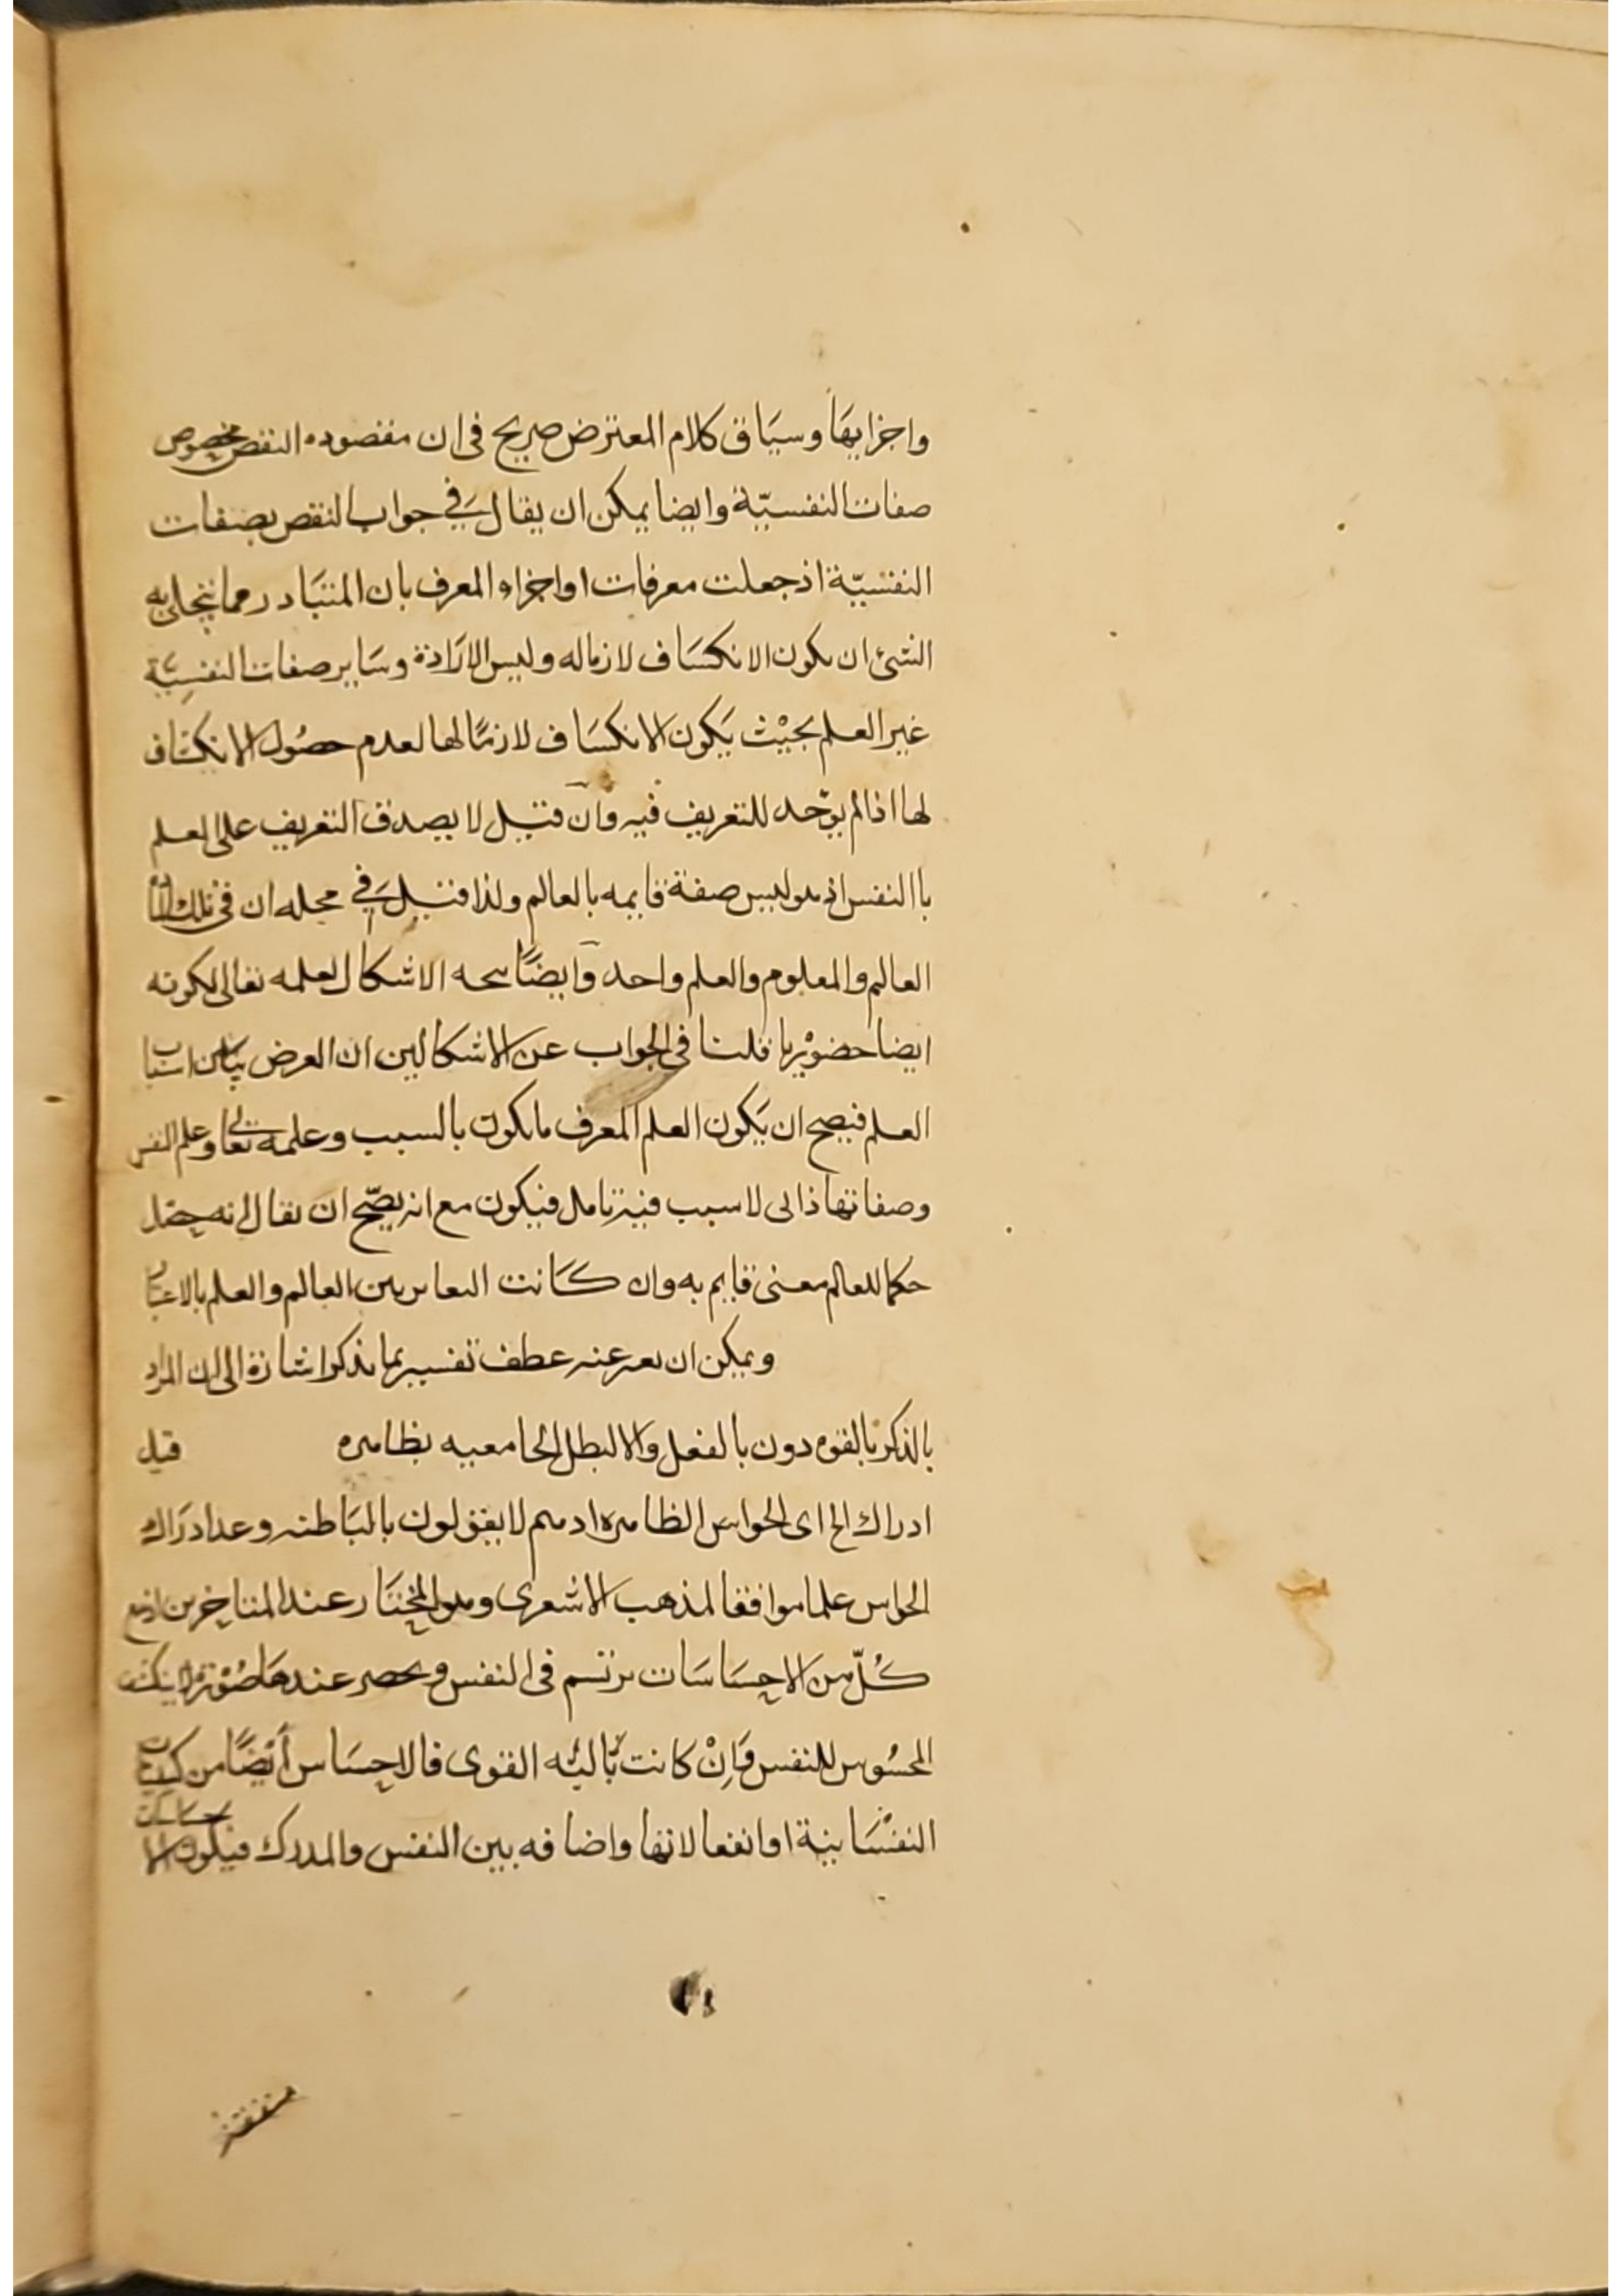 واجزايها وسياق كلام المعترض صريح فى ان مقصوده النقض بخصوص
صفات النفسيّة وايضا يمكن ان يقال في جواب النقص بصفات
النفسيّة اذ جعلت معرفات او اجزاء المعرف بان المتبادر مما يتجلى به
الشئ ان يكون الانكساف لازما له وليس الارادة وساير صفات النفسية
غير العلم بحيْث يَكون الانكسَاف لازمًا لها لعدم حصُول الانكشاف
لها اذا لم يوخد للتعريف فيه وان قيل لا يصدق التعريف على العلم
باالنفس اذ هو ليس صفة قايمه بالعالم ولذا قيل في محله ان فى تلك
العالم والمعلوم والعلم واحد وايضًا يتجه الاشكال لعلمه تعالى لكونه
ايضا حضوْريا قلنا فى الجواب عن الاشكالين ان العرض اسباب
العلم فيصح ان يَكون العلم المعرف ما يكون بالسبب وعلمه تعالى وعلم النفس
وصفاتها ذاتى لا سبب فيه تامل فيكون مع انه يصّح ان يقال انه
حكما للعالم معنى قايم به وان كَانت التغاير بين العالم والعلم بالاعتبار
ويمكن ان يعبر عنه عطف تفسير بما يذكر اشارة الى ان المراد
بالذكر بالقوه دون بالفعل والا لبطل الجامعيه بظاهره قيل
ادراك الخ اى الحواس الظاهره اذ هم لا يقولون بالبَاطنه وعد ادرَاك
الحواس علما موافقا لمذهب الاشعرى وهو المختَار عند المتاخرين
كُلّ من الاحسَاسَات يرتسم فى النفس ويحضر عندهَا صُوْرة
المحسُوس للنفس وَاِنْ كانت بآليه القوى فالاحسَاس أيْضًا من كيفيات
النفسَانية او انفعالاتها واضافه بين النفس والمدرك فيكون الاحساسات